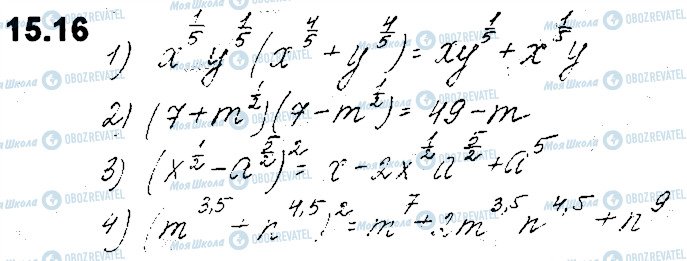 15.16
1) x^{1/5} y^{1/5} (x^{4/5} + y^{4/5}) = xy^{1/5} + x^{1/5}y
2) (7 + m^{1/2})(7 - m^{1/2}) = 49 - m
3) (x^{1/2} - a^{5/2})^2 = x - 2x^{1/2} a^{5/2} + a^5
4) (m^{3,5} + n^{4,5})^2 = m^7 + 2m^{3,5} n^{4,5} + n^9
Моя Школа OBOZREVATEL